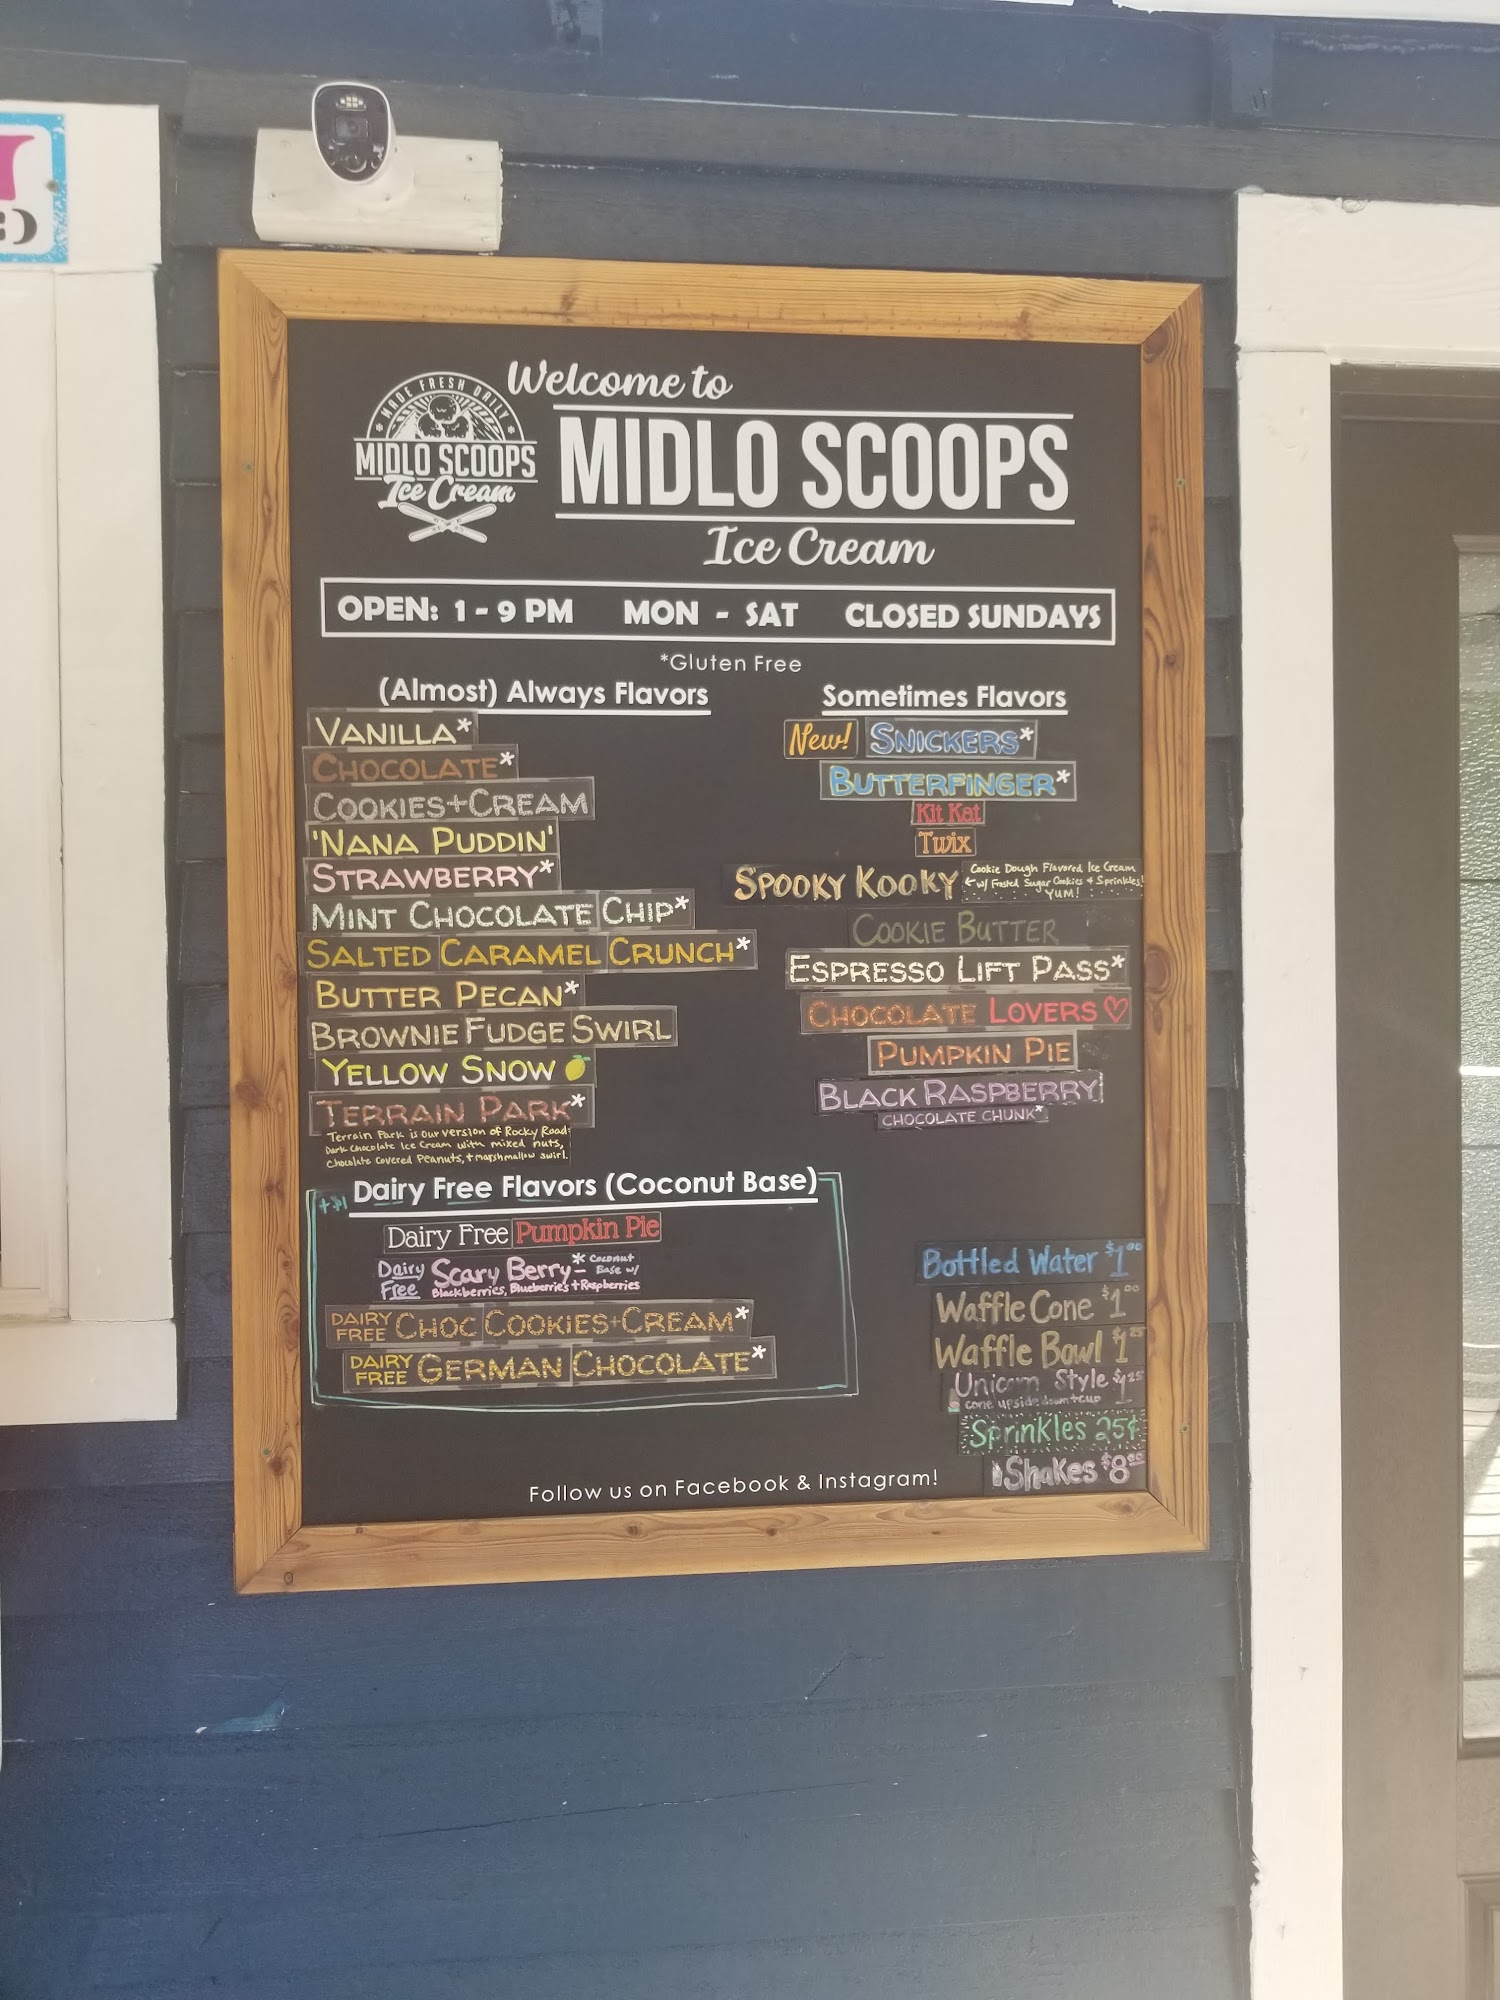 :)
MADE FRESH DAILY
MIDLO SCOOPS
Ice Cream
Welcome to
MIDLO SCOOPS
Ice Cream
OPEN: 1 - 9 PM MON - SAT CLOSED SUNDAYS
*Gluten Free
(Almost) Always Flavors
VANILLA*
CHOCOLATE*
COOKIES+CREAM
'NANA PUDDIN'
STRAWBERRY*
MINT CHOCOLATE CHIP*
SALTED CARAMEL CRUNCH*
BUTTER PECAN*
BROWNIE FUDGE SWIRL
YELLOW SNOW
TERRAIN PARK*
Terrain Park is our version of Rocky Road:
Dark Chocolate Ice Cream with mixed nuts,
chocolate covered Peanuts, + marshmallow swirl.
Sometimes Flavors
New! SNICKERS*
BUTTERFINGER*
Kit Kat
Twix
SPOOKY KOOKY
Cookie Dough Flavored Ice Cream
← w/ Frosted Sugar Cookies + Sprinkles!
YUM!
COOKIE BUTTER
ESPRESSO LIFT PASS*
CHOCOLATE LOVERS ♡
PUMPKIN PIE
BLACK RASPBERRY
CHOCOLATE CHUNK*
+$1 Dairy Free Flavors (Coconut Base)
Dairy Free Pumpkin Pie
Dairy Free Scary Berry* - Coconut Base w/
Blackberries, Blueberries + Raspberries
DAIRY FREE CHOC COOKIES+CREAM*
DAIRY FREE GERMAN CHOCOLATE*
Bottled Water $1.00
Waffle Cone $1.00
Waffle Bowl $1.25
Unicorn Style $1.25
cone upside down + cup
Sprinkles 25¢
Shakes $8.00
Follow us on Facebook & Instagram!